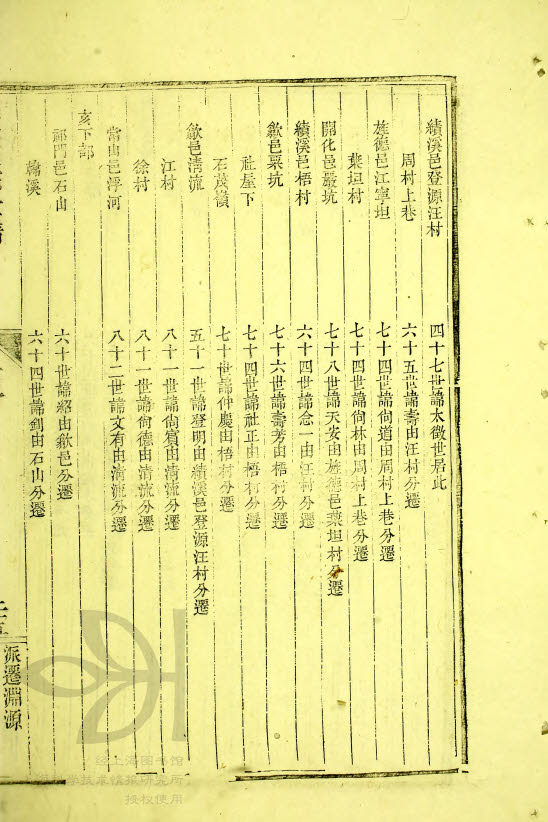 績溪邑登源汪村 四十七世諱太微世居此
周村上巷 六十五世諱壽由汪村分遷
旌德邑江寧坦 七十四世諱尙道由周村上巷分遷
葉坦村 七十四世諱尙林由周村上巷分遷
開化邑嚴坑 七十八世諱天安由旌德邑葉坦村分遷
績溪邑梧村 六十四世諱念一由汪村分遷
歙邑栗坑 七十六世諱壽芳由梧村分遷
社屋下 七十四世諱社正由梧村分遷
石茂嶺 七十世諱仲慶由梧村分遷
歙邑淸流 五十一世諱登明由績溪邑登源汪村分遷
江村 八十一世諱尙賓由淸流分遷
徐村 八十一世諱尙德由淸流分遷
常山邑浮河 八十二世諱文有由淸流分遷
亥下部
祁門邑石山 六十世諱紹由歙邑分遷
鵅溪 六十四世諱劍由石山分遷
派遷淵源
经上海图书馆
学技术情报研究所
授权使用